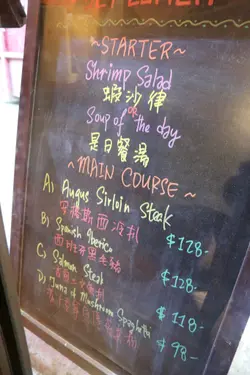 ~STARTER~
Shrimp Salad
蝦沙律
or
Soup of the day
是日餐湯
~MAIN COURSE~
A) Angus Sirloin Steak
安格斯西冷扒 $128-
B) Spanish Iberico
西班牙黑毛豬 $128-
C) Salmon Steak
三文魚扒 $118-
D) of Mushroom Spaghetti
$98-